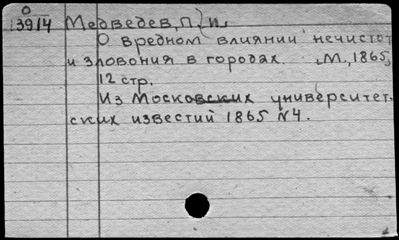 О
13914 Медведев, П. И.
О вредном влиянии нечистот
и зловония в городах. М., 1865,
12 стр.
Из Московских университет-
ских известий 1865 №4.